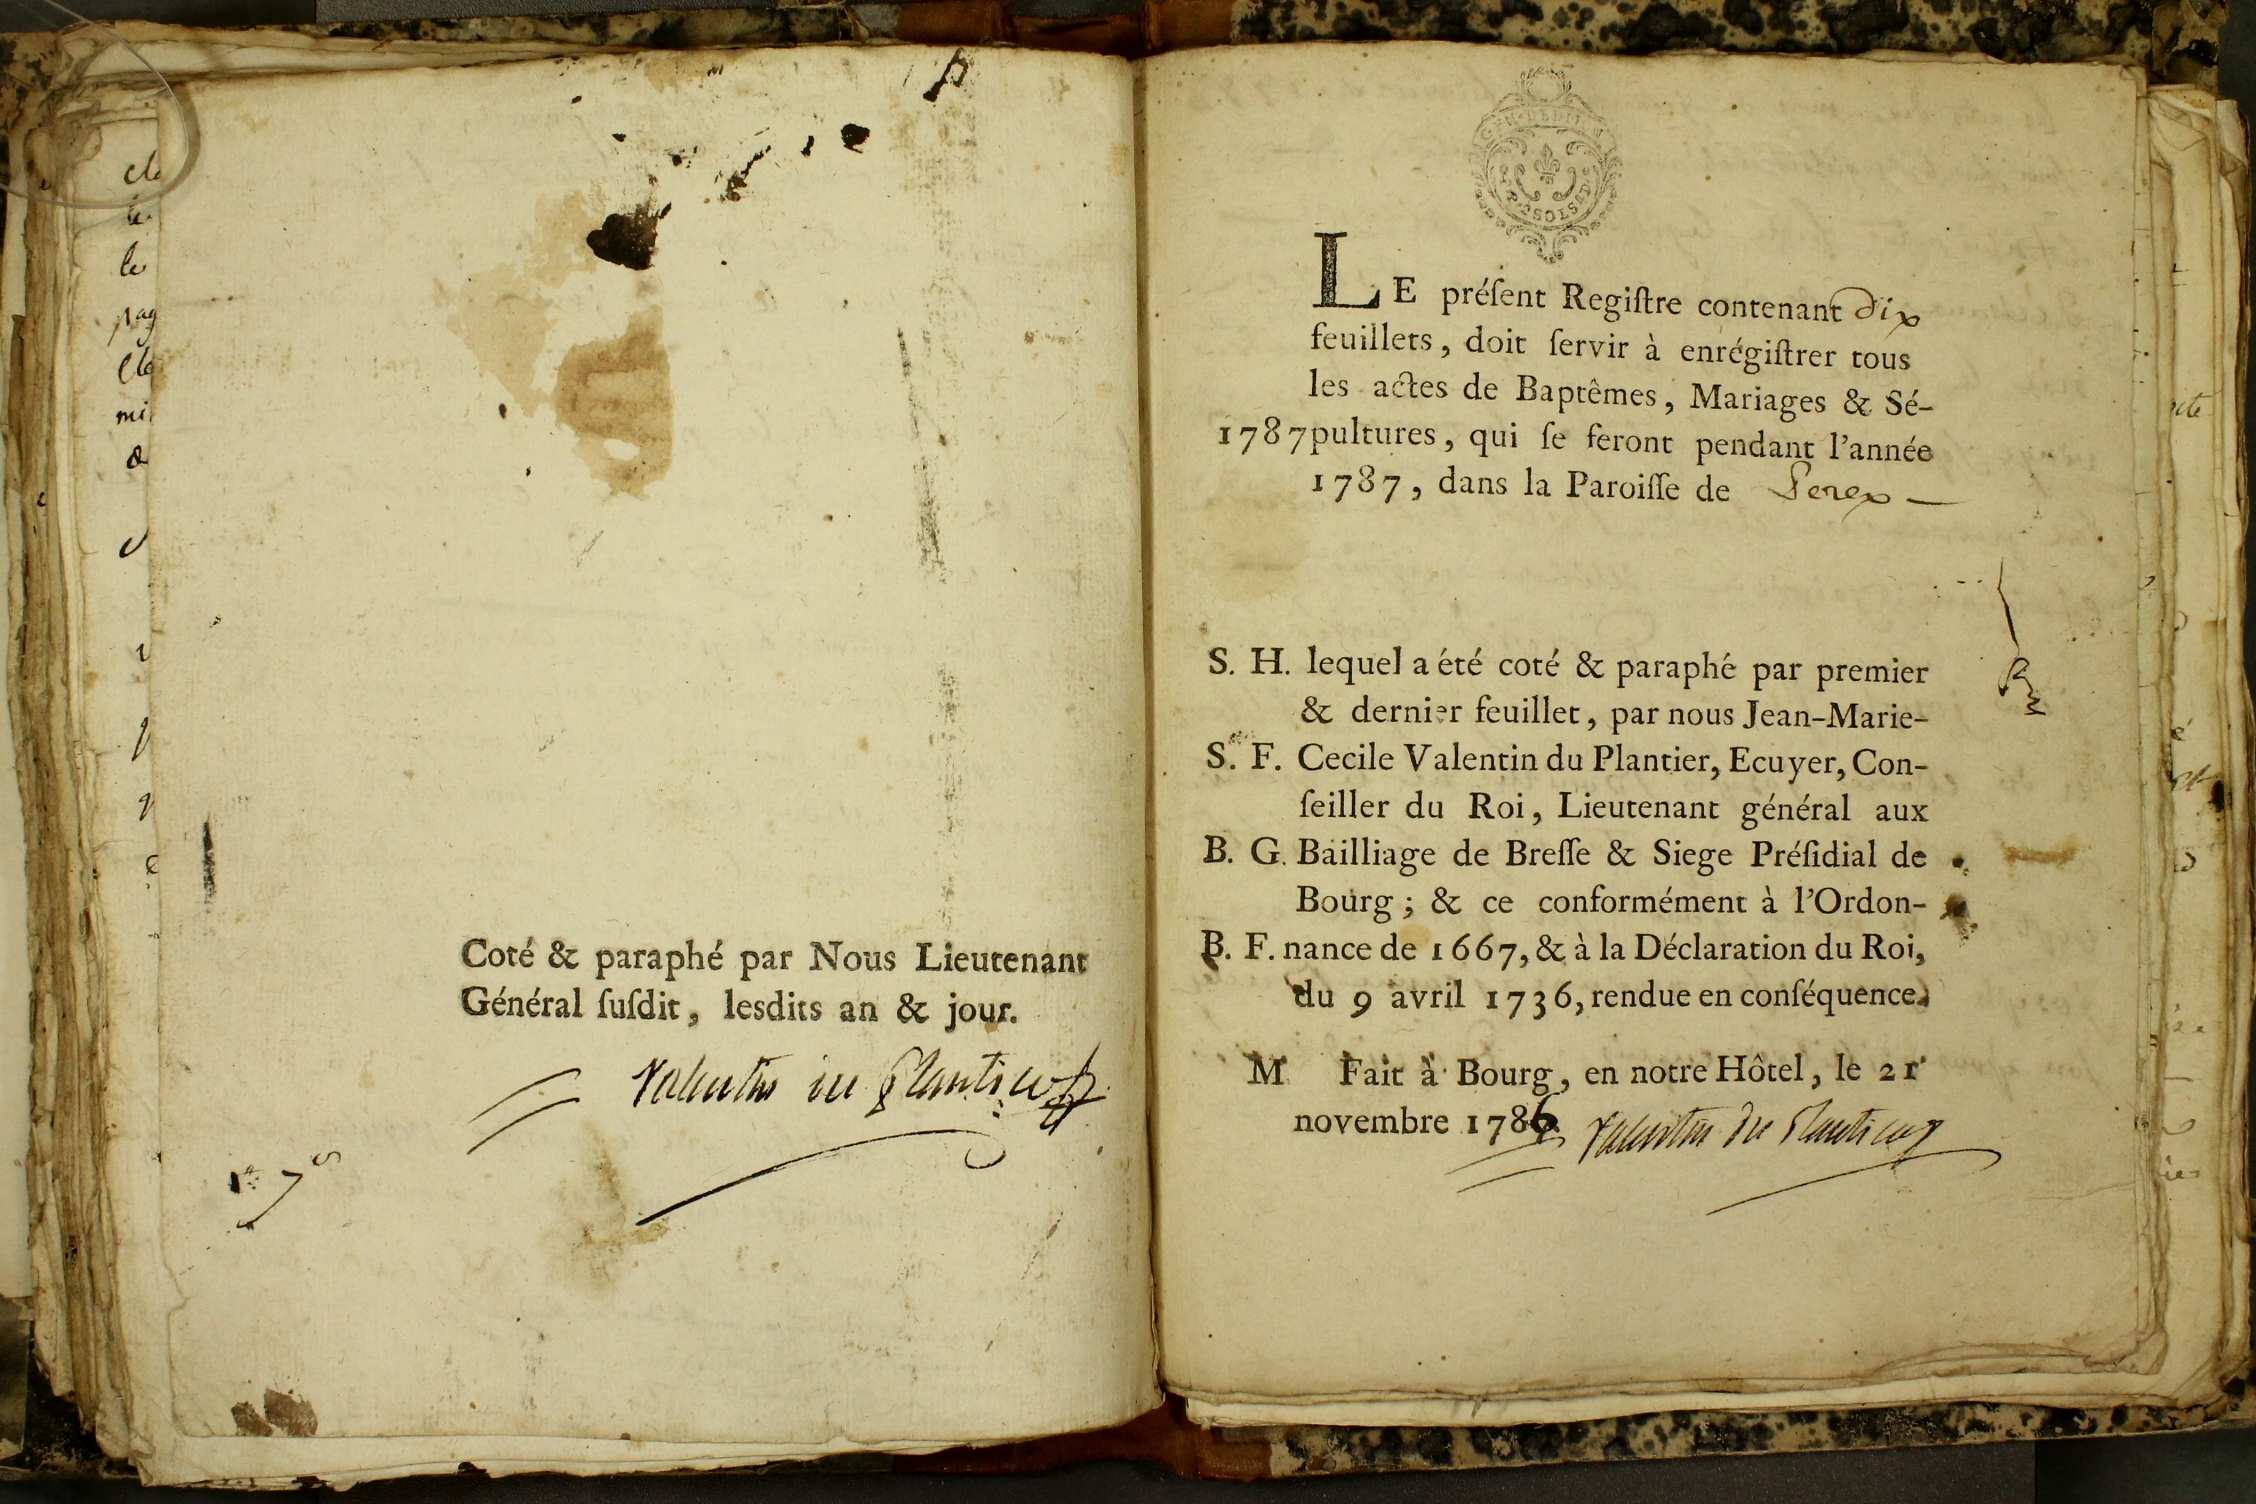 cle
le
le
pag
Cle
mi
&
Coté & paraphé par Nous Lieutenant
Général ſuſdit, lesdits an & jour.
Valentin du Plantier
GEN
LE préſent Regiſtre contenant dix
feuillets, doit ſervir à enrégiſtrer tous
les actes de Baptêmes, Mariages & Sé-
1787 pultures, qui ſe feront pendant l'année
1787, dans la Paroiſſe de Perex —
S. H. lequel a été coté & paraphé par premier
& dernier feuillet, par nous Jean-Marie-
S. F. Cecile Valentin du Plantier, Ecuyer, Con-
ſeiller du Roi, Lieutenant général aux
B. G. Bailliage de Breſſe & Siege Préſidial de
Bourg ; & ce conformément à l'Ordon-
B. F. nance de 1667, & à la Déclaration du Roi,
du 9 avril 1736, rendue en conſéquence.
M Fait à Bourg, en notre Hôtel, le 21
novembre 1786 Valentin du Plantier